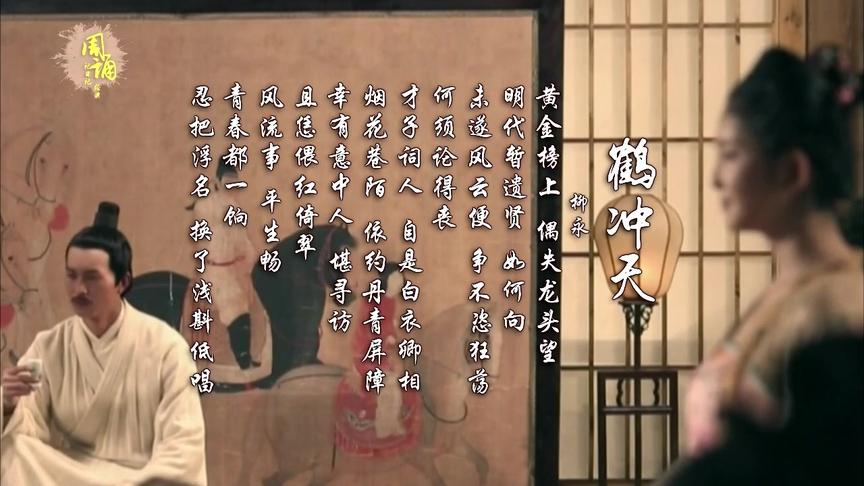 鹤冲天
柳永
黄金榜上 偶失龙头望
明代暂遗贤 如何向
未遂风云便 争不恣狂荡
何须论得丧
才子词人 自是白衣卿相
烟花巷陌 依约丹青屏障
幸有意中人 堪寻访
且恁偎红倚翠
风流事 平生畅
青春都一饷
忍把浮名 换了浅斟低唱
周诵